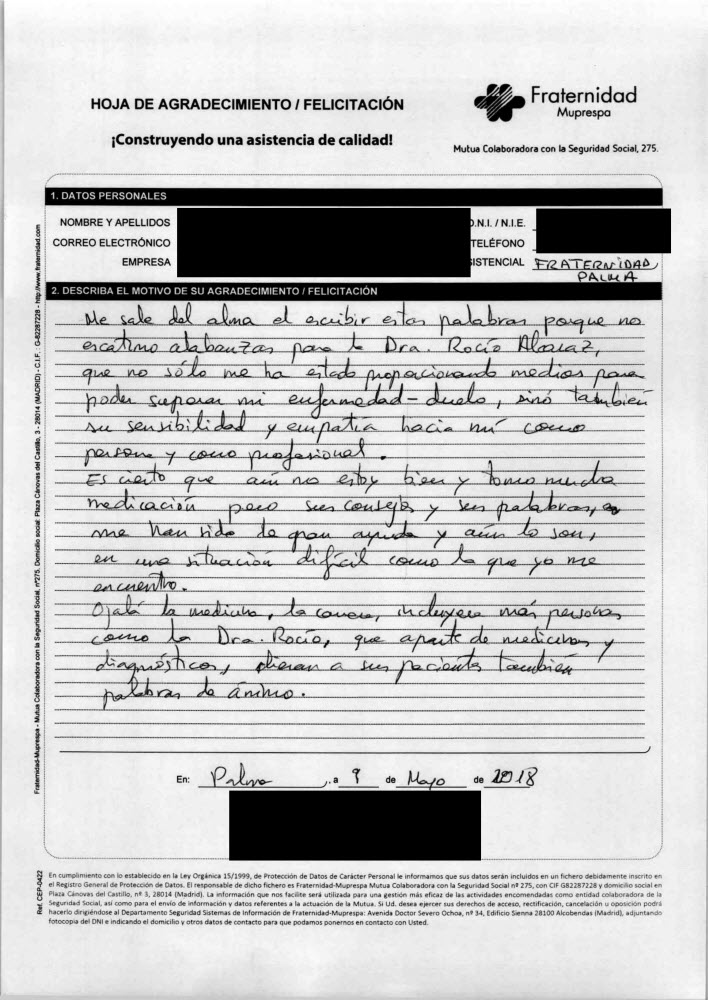 HOJA DE AGRADECIMIENTO / FELICITACIÓN
Fraternidad
Muprespa
¡Construyendo una asistencia de calidad!
Mutua Colaboradora con la Seguridad Social, 275.
1. DATOS PERSONALES
NOMBRE Y APELLIDOS
.N.I. / N.I.E.
CORREO ELECTRÓNICO
TELÉFONO
EMPRESA
ISTENCIAL FRATERNIDAD
PALMA
2. DESCRIBA EL MOTIVO DE SU AGRADECIMIENTO / FELICITACIÓN
Me sale del alma el escribir estas palabras porque no
escatimo alabanzas para la Dra. Rocío Alcaraz,
que no sólo me ha estado proporcionando medios para
poder superar mi enfermedad-duelo, sinó también
su sensibilidad y empatía hacia mí como
persona y como profesional.
Es cierto que aún no estoy bien y tomo mucha
medicación pero sus consejos y sus palabras,
me han sido de gran ayuda y aún lo son,
en una situación difícil como la que yo me
encuentro.
Ojalá la medicina, la carrera, incluyera más personas
como la Dra. Rocío, que aparte de medicinas y
diagnósticos, dieran a sus pacientes también
palabras de ánimo.
En: Palma , a 9 de Mayo de 2018
Fraternidad-Muprespa - Mutua Colaboradora con la Seguridad Social, nº275. Domicilio social: Plaza Cánovas del Castillo, 3 - 28014 (MADRID) - C.I.F.: G-82287228 - http://www.fraternidad.com
Ref. CEP-0422
En cumplimiento con lo establecido en la Ley Orgánica 15/1999, de Protección de Datos de Carácter Personal le informamos que sus datos serán incluidos en un fichero debidamente inscrito en
el Registro General de Protección de Datos. El responsable de dicho fichero es Fraternidad-Muprespa Mutua Colaboradora con la Seguridad Social nº 275, con CIF G82287228 y domicilio social en
Plaza Cánovas del Castillo, nº 3, 28014 (Madrid). La información que nos facilite será utilizada para una gestión más eficaz de las actividades encomendadas como entidad colaboradora de la
Seguridad Social, así como para el envío de información y datos referentes a la actuación de la Mutua. Si Ud. desea ejercer sus derechos de acceso, rectificación, cancelación u oposición podrá
hacerlo dirigiéndose al Departamento Seguridad Sistemas de Información de Fraternidad-Muprespa: Avenida Doctor Severo Ochoa, nº 34, Edificio Sienna 28100 Alcobendas (Madrid), adjuntando
fotocopia del DNI e indicando el domicilio y otros datos de contacto para que podamos ponernos en contacto con Usted.